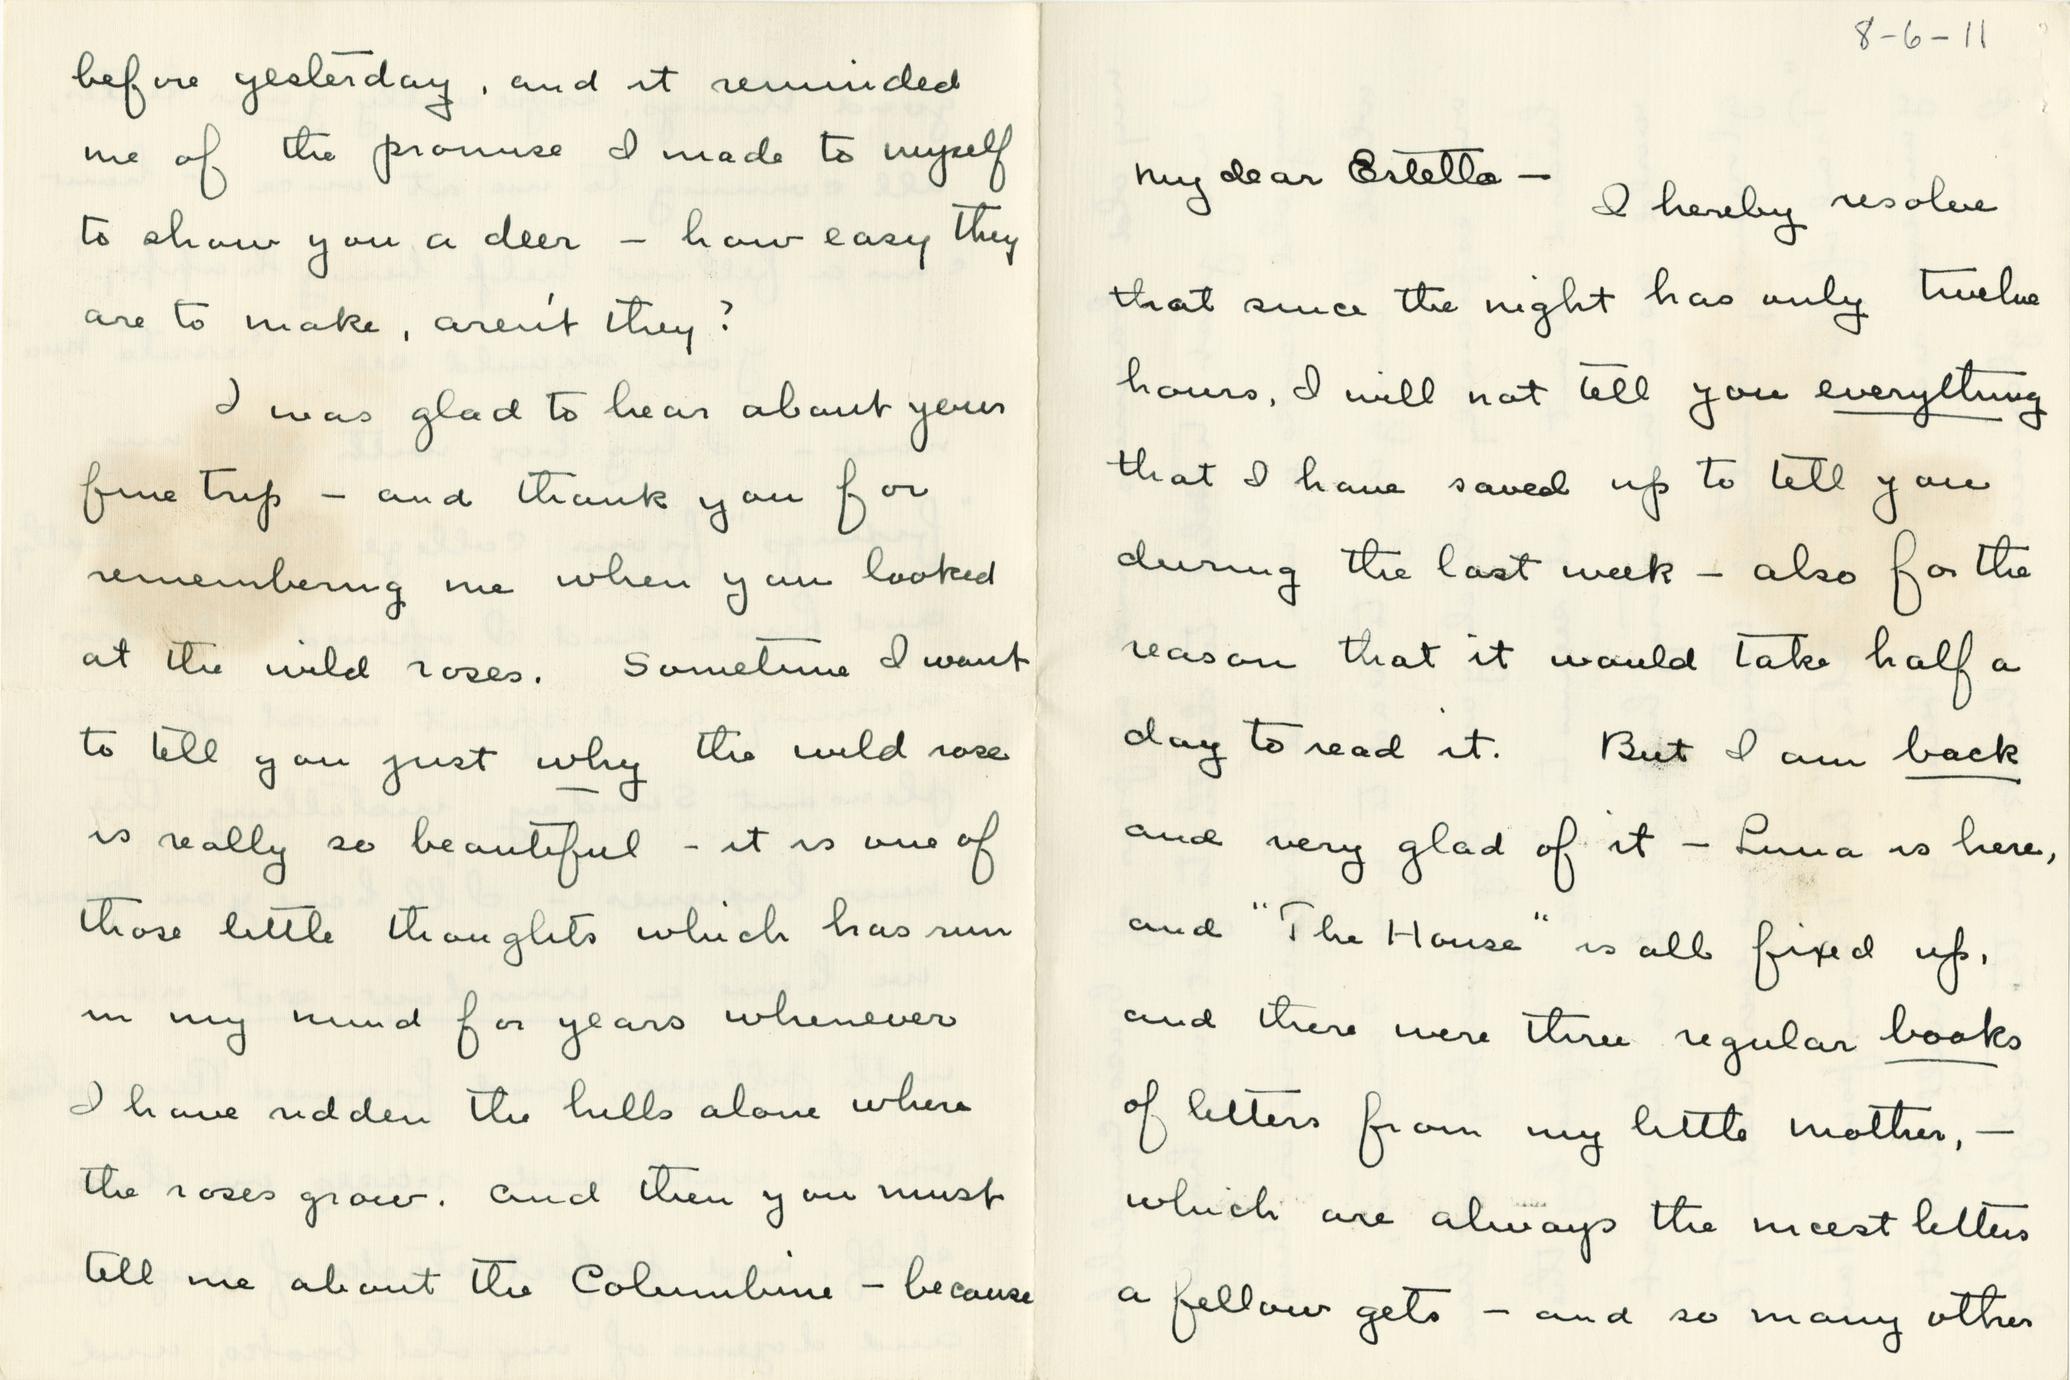 before yesterday, and it reminded
me of the promise I made to myself
to show you a deer – how easy they
are to make, aren't they?
I was glad to hear about your
fine trip – and thank you for
remembering me when you looked
at the wild roses. Sometime I want
to tell you just why the wild rose
is really so beautiful – it is one of
those little thoughts which has run
in my mind for years whenever
I have ridden the hills alone where
the roses grow. And then you must
tell me about the Columbine – because
8-6-11
My dear Estella –
I hereby resolve
that since the night has only twelve
hours, I will not tell you everything
that I have saved up to tell you
during the last week – also for the
reason that it would take half a
day to read it. But I am back
and very glad of it – Luna is here,
and "The House" is all fixed up,
and there were three regular books
of letters from my little mother, –
which are always the nicest letters
a fellow gets – and so many other